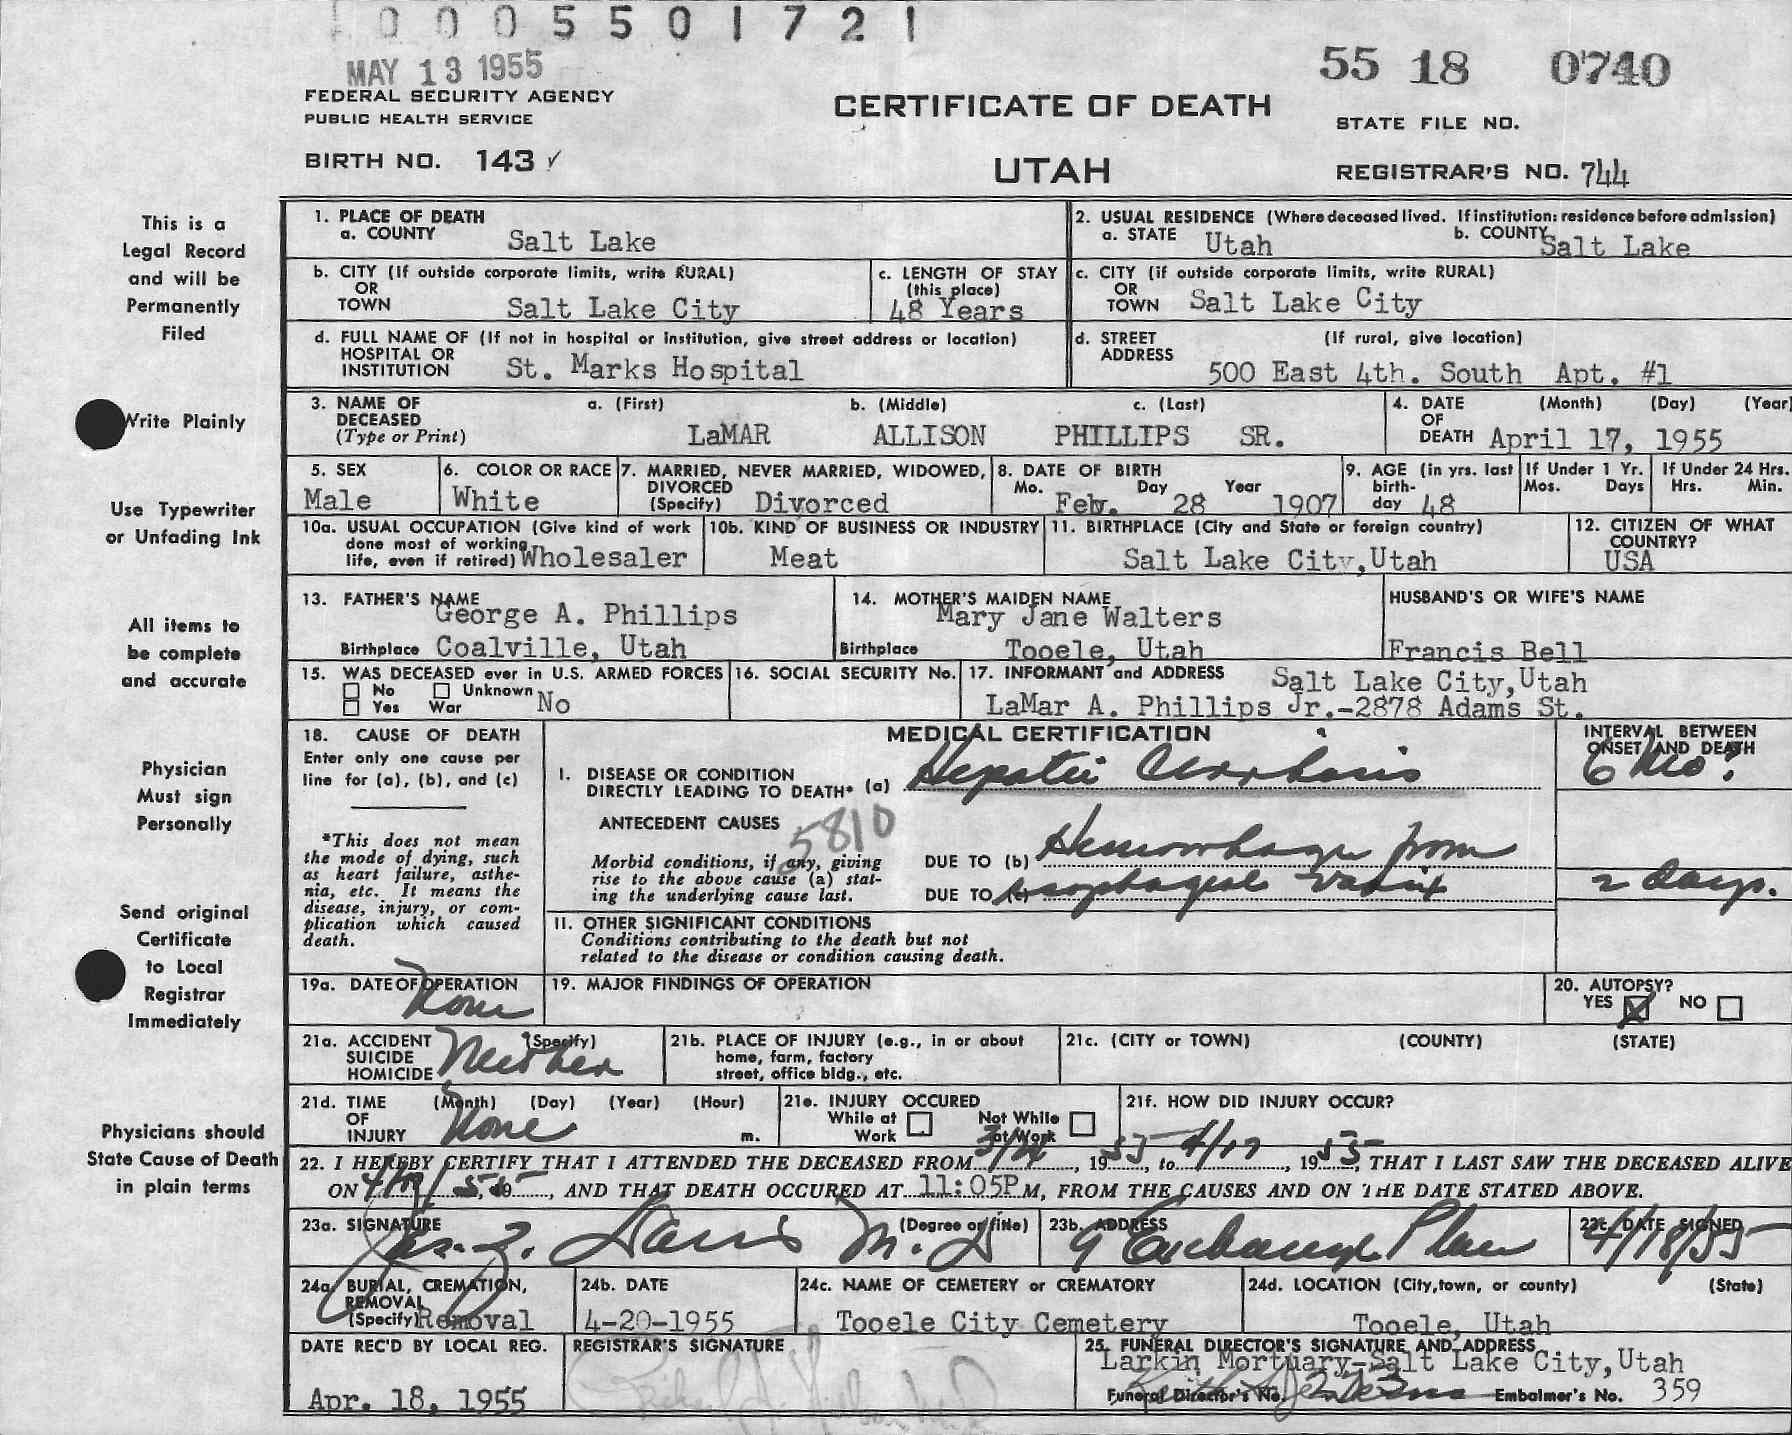 0005501721
MAY 13 1955
55 18 0740
FEDERAL SECURITY AGENCY
PUBLIC HEALTH SERVICE
CERTIFICATE OF DEATH
STATE FILE NO.
BIRTH NO. 143 ✓
UTAH
REGISTRAR'S NO. 744
This is a
Legal Record
and will be
Permanently
Filed
Write Plainly
Use Typewriter
or Unfading Ink
All items to
be complete
and accurate
Physician
Must sign
Personally
Send original
Certificate
to Local
Registrar
Immediately
Physicians should
State Cause of Death
in plain terms
1. PLACE OF DEATH
a. COUNTY Salt Lake
2. USUAL RESIDENCE (Where deceased lived. If institution: residence before admission)
a. STATE Utah b. COUNTY Salt Lake
b. CITY (If outside corporate limits, write RURAL)
OR
TOWN Salt Lake City
c. LENGTH OF STAY
(this place)
48 Years
c. CITY (if outside corporate limits, write RURAL)
OR
TOWN Salt Lake City
d. FULL NAME OF (If not in hospital or institution, give street address or location)
HOSPITAL OR
INSTITUTION St. Marks Hospital
d. STREET (If rural, give location)
ADDRESS
500 East 4th. South Apt. #1
3. NAME OF a. (First) b. (Middle) c. (Last)
DECEASED
(Type or Print) LaMAR ALLISON PHILLIPS SR.
4. DATE (Month) (Day) (Year)
OF
DEATH April 17, 1955
5. SEX
Male
6. COLOR OR RACE
White
7. MARRIED, NEVER MARRIED, WIDOWED,
DIVORCED
(Specify) Divorced
8. DATE OF BIRTH
Mo. Day Year
Feb. 28 1907
9. AGE (in yrs. last
birth-
day 48
If Under 1 Yr.
Mos. Days
If Under 24 Hrs.
Hrs. Min.
10a. USUAL OCCUPATION (Give kind of work
done most of working
life, even if retired) Wholesaler
10b. KIND OF BUSINESS OR INDUSTRY
Meat
11. BIRTHPLACE (City and State or foreign country)
Salt Lake City, Utah
12. CITIZEN OF WHAT
COUNTRY?
USA
13. FATHER'S NAME
George A. Phillips
Birthplace Coalville, Utah
14. MOTHER'S MAIDEN NAME
Mary Jane Walters
Birthplace Tooele, Utah
HUSBAND'S OR WIFE'S NAME
Francis Bell
15. WAS DECEASED ever in U.S. ARMED FORCES
No Unknown
Yes War No
16. SOCIAL SECURITY No.
17. INFORMANT and ADDRESS Salt Lake City, Utah
LaMar A. Phillips Jr.-2878 Adams St.
18. CAUSE OF DEATH
Enter only one cause per
line for (a), (b), and (c)
*This does not mean
the mode of dying, such
as heart failure, asthe-
nia, etc. It means the
disease, injury, or com-
plication which caused
death.
MEDICAL CERTIFICATION
INTERVAL BETWEEN
ONSET AND DEATH
I. DISEASE OR CONDITION
DIRECTLY LEADING TO DEATH* (a) Hepatic Cirrhosis 6 Mo?
ANTECEDENT CAUSES 5810
Morbid conditions, if any, giving
rise to the above cause (a) stat-
ing the underlying cause last.
DUE TO (b) Hemorrhage from
DUE TO (c) esophageal varix 2 days.
II. OTHER SIGNIFICANT CONDITIONS
Conditions contributing to the death but not
related to the disease or condition causing death.
19a. DATE OF OPERATION
None
19. MAJOR FINDINGS OF OPERATION
20. AUTOPSY?
YES X NO
21a. ACCIDENT (Specify)
SUICIDE
HOMICIDE Neither
21b. PLACE OF INJURY (e.g., in or about
home, farm, factory
street, office bldg., etc.
21c. (CITY or TOWN) (COUNTY) (STATE)
21d. TIME (Month) (Day) (Year) (Hour)
OF
INJURY None m.
21e. INJURY OCCURED
While at Not While
Work at Work
21f. HOW DID INJURY OCCUR?
22. I HEREBY CERTIFY THAT I ATTENDED THE DECEASED FROM , 1955, to 4/17, 1955, THAT I LAST SAW THE DECEASED ALIVE
ON , AND THAT DEATH OCCURED AT 11:05P M, FROM THE CAUSES AND ON THE DATE STATED ABOVE.
23a. SIGNATURE (Degree or title)
Davis M.D
23b. ADDRESS
9 Exchange Place
23c. DATE SIGNED
4/18/55
24a. BURIAL, CREMATION,
REMOVAL
(Specify) Removal
24b. DATE
4-20-1955
24c. NAME OF CEMETERY or CREMATORY
Tooele City Cemetery
24d. LOCATION (City, town, or county) (State)
Tooele, Utah
DATE REC'D BY LOCAL REG.
Apr. 18, 1955
REGISTRAR'S SIGNATURE
25. FUNERAL DIRECTOR'S SIGNATURE AND ADDRESS
Larkin Mortuary-Salt Lake City, Utah
Funeral Director's No. Embalmer's No. 359